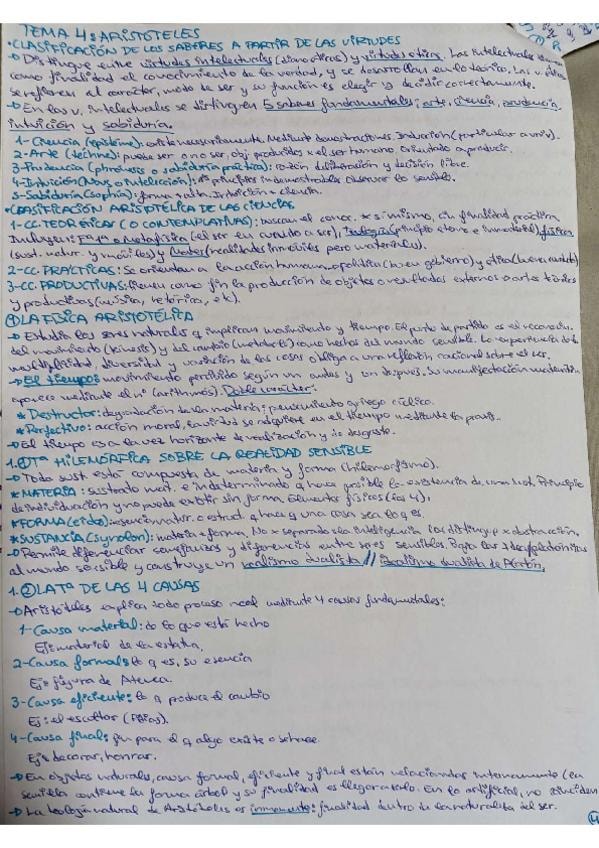 TEMA 4: ARISTOTELES
• CLASIFICACIÓN DE LOS SABERES A PARTIR DE LAS VIRTUDES
→ Distingue entre virtudes intelectuales (dianoéticas) y virtudes éticas. Las intelectuales tienen
como finalidad el conocimiento de la verdad, y se desarrollan en lo teórico. Las v. éticas
se refieren al carácter, modo de ser y su función es elegir y decidir correctamente.
→ En las v. intelectuales se distinguen 5 saberes fundamentales: arte, ciencia, prudencia,
intuición y sabiduría.
1- Ciencia (episteme): existe necesariamente. Mediante demostraciones. Inducción (particular a univ).
2- Arte (techne): puede ser o no ser, obj. producidos x el ser humano. Orientado a producir.
3- Prudencia (phronesis o sabiduría práctica): razón, deliberación y decisión libre.
4- Intuición (Nous o intelección): 1ºs principios indemostrables. Observar lo sensible.
5- Sabiduría (sophia): forma + alta. Intuición + ciencia.
• CLASIFICACIÓN ARISTOTÉLICA DE LAS CIENCIAS
1- CC. TEORÉTICAS (O CONTEMPLATIVAS): buscan el conoc. x sí mismo, sin finalidad práctica.
Incluyen: Fª 1ª o Metafísica (el ser en cuanto a ser), Teología (principio eterno e inmaterial), física
(sust. natur. y móviles) y Mates (realidades inmóviles pero materiales).
2- CC. PRÁCTICAS: Se orientan a la acción humana → política (buen gobierno) y ética (buena conducta)
3- CC. PRODUCTIVAS: tienen como fin la producción de objetos o resultados externos → arte técnico
y productivas (música, retórica, etc).
① LA FÍSICA ARISTOTÉLICA
→ Estudia los seres naturales q implican movimiento y tiempo. El punto de partida es el reconoc.
del movimiento (kinesis) y del cambio (metabolé) como hechos del mundo sensible. La experiencia de la
multiplicidad, diversidad y variación de las cosas obliga a una reflexión racional sobre el ser.
→ El tiempo: movimiento percibido según un antes y un después. Su manifestación
aparece mediante el nº (arithmos). Doble carácter:
* Destructor: degradación de la materia; pensamiento griego cíclico.
* Perfectivo: acción moral, la virtud se adquiere en el tiempo mediante la
→ El tiempo es a la vez horizonte de realización y de desgaste.
1.① Tª HILEMÓRFICA SOBRE LA REALIDAD SENSIBLE
→ Toda sust. está compuesta de materia y forma (hilemorfismo).
* MATERIA: sustrato mat. e indeterminado q hace posible la existencia de una sust. Principio
de individuación y no puede existir sin forma. Elementos físicos (los 4).
* FORMA (eidos): esencia, natur. o estruct. q hace q una cosa sea lo q es.
* SUSTANCIA (synolon): materia + forma. No + separados → la inteligencia los distingue x abstracción.
→ Permite diferenciar semejanzas y diferencias entre seres sensibles. Baja las ideas platónicas
al mundo sensible y construye un realismo dualista // Idealismo dualista de Platón.
1.② LA Tª DE LAS 4 CAUSAS
→ Aristóteles explica todo proceso real mediante 4 causas fundamentales:
1- Causa material: de lo que está hecho
Ej: material de la estatua.
2- Causa formal: lo q es, su esencia
Ej: figura de Atenea.
3- Causa eficiente: lo q produce el cambio
Ej: el escultor (Fidias).
4- Causa final: fin para el q algo existe o se hace.
Ej: decorar, honrar.
→ En objetos naturales, causa formal, eficiente y final están relacionadas internamente (la
semilla contiene la forma árbol y su finalidad es llegar a serlo. En lo artificial, no coinciden
→ La teología natural de Aristóteles es inmanente: finalidad dentro de la naturaleza del ser.